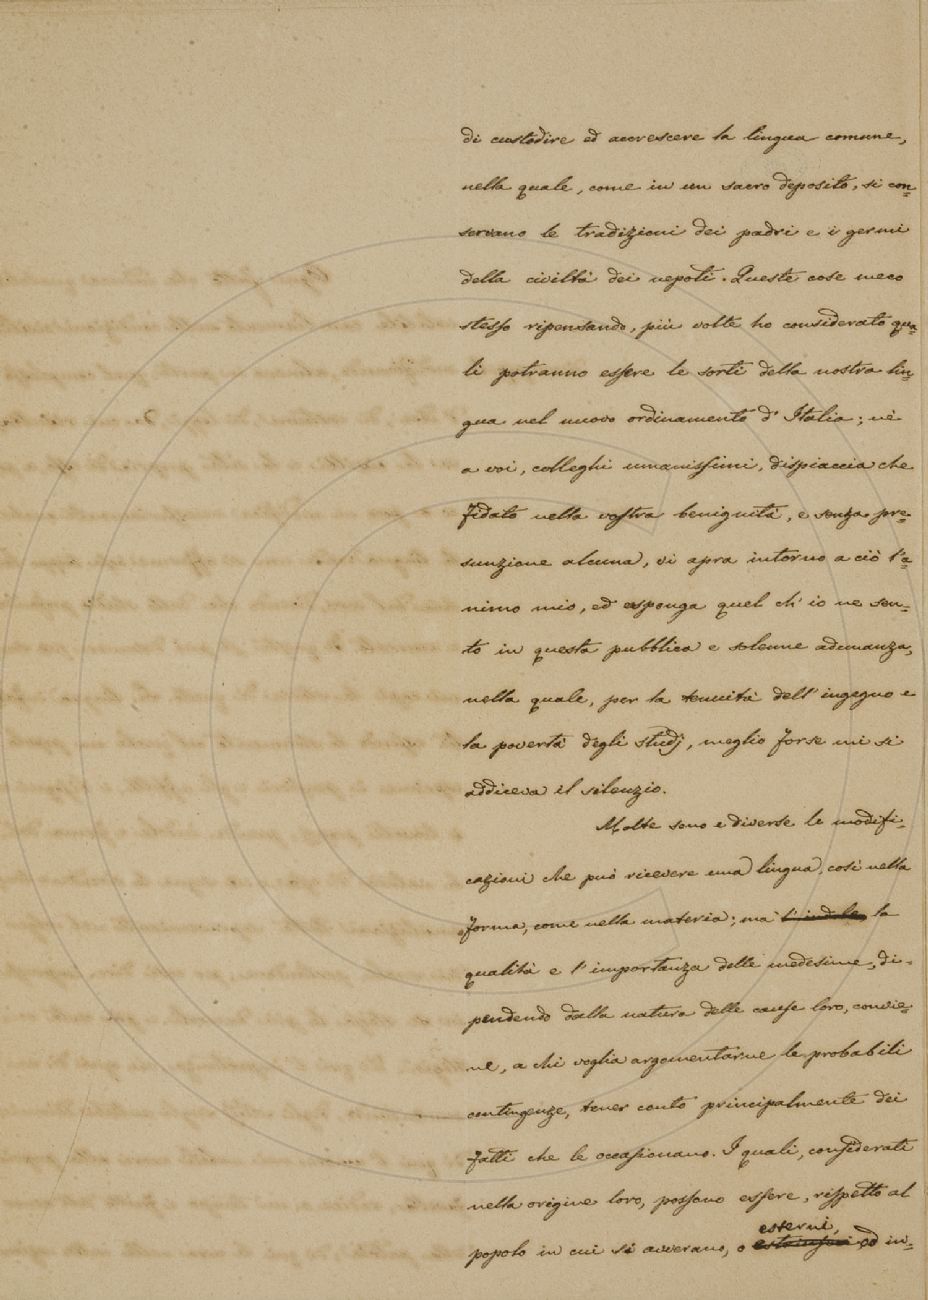 di custodire ed accrescere la lingua comune,
nella quale, come in un sacro deposito, si con=
servano le tradizioni dei padri e i germi
della civiltà dei nepoti. Queste cose meco
stesso ripensando, più volte ho considerato qua=
li potranno essere le sorti della nostra lin=
gua nel nuovo ordinamento d'Italia; nè
a voi, colleghi umanissimi, dispiaccia che
fidato nella vostra benignità, e senza pre=
sunzione alcuna, vi apra intorno a ciò l'a=
nimo mio, ed esponga quel ch'io ne sen=
to in questa pubblica e solenne adunanza,
nella quale, per la tenuità dell'ingegno e
la povertà degli studj, meglio forse mi si
addiceva il silenzio.
Molte sono e diverse le modifi=
cazioni che può ricevere una lingua, così nella
forma, come nella materia; ma l'indole la
qualità e l'importanza delle medesime, di=
pendendo dalla natura delle cause loro, convie=
ne, a chi voglia argomentarne le probabili
contingenze, tener conto principalmente dei
fatti che le occasionano. I quali, considerati
nella origine loro, possono essere, rispetto al
esterni,
popolo in cui si avverano, o ed in=